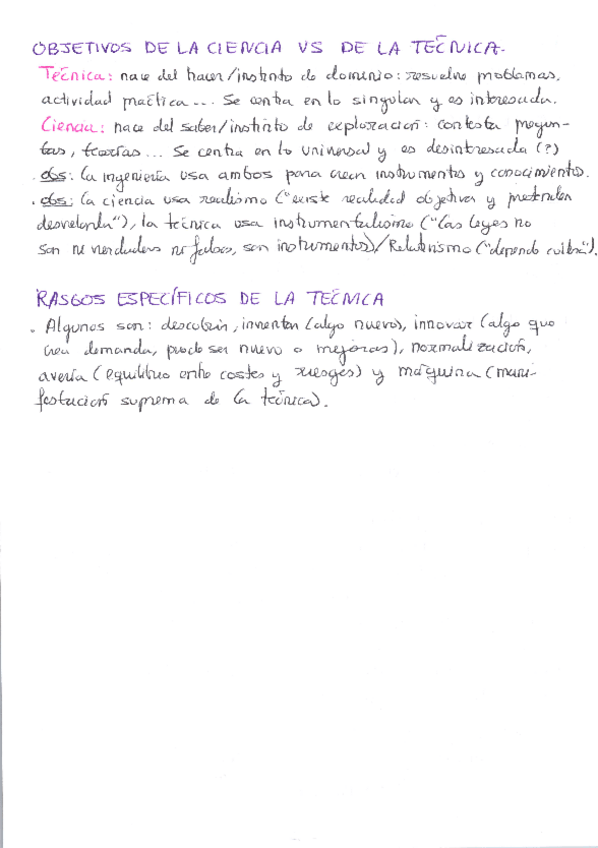 OBJETIVOS DE LA CIENCIA VS DE LA TECNICA.
Técnica: nace del hacer/instinto de dominio: resuelve problemas,
actividad práctica... Se centra en lo singular y es interesada.
Ciencia: nace del saber/instinto de exploración: contesta pregun-
tas, teorías... Se centra en lo universal y es desinteresada (?)
. obs: La ingeniería usa ambos para crear instrumentos y conocimientos.
. obs: la ciencia usa realismo ("existe realidad objetiva y pretenden
desvelarla"), la técnica usa instrumentalismo ("las leyes no
son ni verdaderas ni falsas, son instrumentos)/Relativismo ("depende cultura").
RASGOS ESPECÍFICOS DE LA TECNICA
. Algunos son: descubrir, inventar (algo nuevo), innovar (algo que
crea demanda, puede ser nuevo o mejoras), normalización,
avería (equilibrio entre costes y riesgos) y máquina (mani-
festación suprema de la técnica).